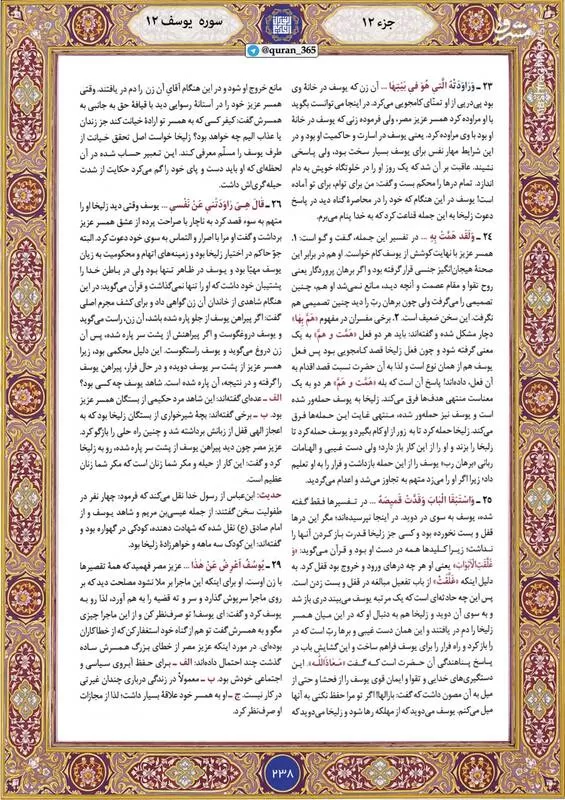 جزء ۱۲
سوره یوسف ۱۲
@quran_365
مشرق
۲۳ ـ وَرَاوَدَتْهُ الَّتِي هُوَ فِي بَيْتِهَا ... آن زن که یوسف در خانهٔ وی
بود پی‌درپی از او تمنّای کامجویی می‌کرد. در اینجا می‌توانست بگوید
با او مراوده کرد همسر عزیز مصر، ولی فرموده زنی که یوسف در خانهٔ
او بود با وی مراوده کرد. یعنی یوسف در اسارت و حاکمیت او بود و در
این شرایط مهار نفس برای یوسف بسیار سخت بود، ولی پاسخی
نشیند. عاقبت بر آن شد که یک روز او را در خلوتگاه خویش به دام
اندازد. تمام درها را محکم بست و گفت: من برای توام، برای تو آماده
است! یوسف در این هنگام که خود را در محاصرهٔ گناه دید در پاسخ
دعوت زلیخا به این جمله قناعت کرد که به خدا پناه می‌برم.
۲۴ ـ وَلَقَدْ هَمَّتْ بِهِ ... در تفسیر این جمله، گفت و گو است: ۱.
همسر عزیز با نهایت کوشش از یوسف کام خواست. او هم در برابر این
صحنهٔ هیجان‌انگیز جنسی قرار گرفته بود و اگر برهان پروردگار یعنی
روح تقوا و مقام عصمت و آنچه دید، مانع نمی‌شد او هم، چنین
تصمیمی را می‌گرفت ولی چون برهان ربّ را دید چنین تصمیمی هم
نگرفت. این سخن ضعیف است. ۲. برخی مفسران در مفهوم «هَمَّ بِهَا»
دچار مشکل شده و گفته‌اند: باید هر دو فعل «هَمَّت و هَمَّ» به یک
معنی گرفته شود و چون فعل زلیخا قصد کامجویی بود پس فعل
یوسف هم از همان نوع است و لذا به آن حضرت نسبت قصد اقدام به
آن فعل، داده‌اند؛ پاسخ آن است که بله «هَمَّت و هَمَّ» هر دو به یک
معناست منتهی هدف‌ها فرق می‌کند. زلیخا به یوسف حمله‌ور شده
است و یوسف نیز حمله‌ور شده، منتهی غایت این حمله‌ها فرق
می‌کند. زلیخا حمله کرد تا به زور از او کام بگیرد و یوسف حمله کرد تا
زلیخا را بزند و او را از این کار باز دارد؛ ولی دست غیبی و الهامات
ربانی «برهان رب» یوسف را از این حمله بازداشت و فرار را به او تعلیم
داد؛ زیرا اگر او را می‌زد متهم به تجاوز می‌شد و اعدام می‌گردید.
۲۵ ـ وَاسْتَبَقَا الْبَابَ وَقَدَّتْ قَمِيصَهُ ... در تفسیرها فقط گفته
شده، یوسف به سوی در دوید. در اینجا نپرسیده‌اند؛ مگر این درها
قفل و بست نخورده بود و کسی جز زلیخا قدرت باز کردن آنها را
نداشت؛ زیرا کلیدها همه در دست او بود و قرآن می‌گوید: «وَ
غَلَّقَتِ الْأَبْوَابَ» یعنی او هر چه درهای ورود و خروج بود قفل کرد. به
دلیل اینکه «غَلَّقَتْ» از باب تفعیل مبالغه در قفل و بست زدن است.
پس این چه حادثه‌ای است که یک مرتبه یوسف می‌بیند دری باز شد
و به سوی آن دوید و زلیخا هم به دنبال او که در این میان همسر
زلیخا را دم در یافتند و این همان دست غیبی و برهان ربّ است که در
را باز کرد و راه فرار را برای یوسف فراهم ساخت و این گشایش باب در
پاسخ پناهندگی آن حضرت است که گفت «مَعَاذَ اللَّه». این
دستگیری‌های خدایی و تقوا و ایمان قوی یوسف را از فحشا و حتی از
میل به آن مصون داشت که گفت: بارالها! اگر تو مرا حفظ نکنی به آنها
میل می‌کنم. یوسف می‌دوید که از مهلکه رها شود و زلیخا می‌دوید که
مانع خروج او شود و در این هنگام آقای آن زن را دم در یافتند. وقتی
همسر عزیز خود را در آستانهٔ رسوایی دید با قیافهٔ حق به جانبی به
همسرش گفت: کیفر کسی که به همسر تو ارادهٔ خیانت کند جز زندان
یا عذاب الیم چه خواهد بود؟ زلیخا خواست اصل تحقق خیانت از
طرف یوسف را مسلّم معرفی کند. این تعبیر حساب شده در آن
لحظه‌ای که او باید دست و پای خود را گم می‌کرد حکایت از شدت
حیله‌گری‌اش داشت.
۲۶ ـ قَالَ هِيَ رَاوَدَتْنِي عَنْ نَفْسِي ... یوسف وقتی دید زلیخا او را
متهم به سوء قصد کرد به ناچار با صراحت پرده از عشق همسر عزیز
برداشت و گفت او مرا با اصرار و التماس به سوی خود دعوت کرد. البته
جوّ حاکم در اختیار زلیخا بود و زمینه‌های اتهام و محکومیت به زیان
یوسف مهیّا بود و یوسف در ظاهر تنها بود ولی در باطن خدا را
پشتیبان خود داشت که او را تنها نمی‌گذاشت و قرآن می‌گوید: در این
هنگام شاهدی از خاندان آن زن گواهی داد و برای کشف مجرم اصلی
گفت: اگر پیراهن یوسف از جلو پاره شده باشد، آن زن، راست می‌گوید
و یوسف دروغگوست و اگر پیراهنش از پشت سر پاره شده، پس آن
زن دروغ می‌گوید و یوسف راستگوست. این دلیل محکمی بود، زیرا
همسر عزیز از پشت سر یوسف دویده و در حال فرار، پیراهن یوسف
را گرفته و در نتیجه، آن پاره شده است. شاهد یوسف چه کسی بود؟
الف ـ عده‌ای گفته‌اند: این شاهد مرد حکیمی از بستگان همسر عزیز
بود. ب ـ برخی گفته‌اند: بچهٔ شیرخواری از بستگان زلیخا بود که به
اعجاز الهی قفل از زبانش برداشته شد و چنین راه حلی را بازگو کرد.
عزیز مصر چون دید پیراهن یوسف از پشت سر پاره شده، رو به زلیخا
کرد و گفت: این کار از حیله و مکر شما زنان است که مکر شما زنان
عظیم است.
حدیث: ابن‌عباس از رسول خدا نقل می‌کند که فرمود: چهار نفر در
طفولیت سخن گفتند: از جمله عیسی‌بن مریم و شاهد یوسف و از
امام صادق (ع) نقل شده که شهادت دهنده، کودکی در گهواره بود و
گفته‌اند: این کودک سه ماهه و خواهرزادهٔ زلیخا بود.
۲۹ ـ يُوسُفُ أَعْرِضْ عَنْ هَٰذَا ... عزیز مصر فهمید که همهٔ تقصیرها
با زن اوست. او برای اینکه این ماجرا بر ملا نشود مصلحت دید که بر
روی ماجرا سرپوش گذارد و سر و ته قضیه را به هم آورد، لذا رو به
یوسف کرد و گفت: ای یوسف! تو صرف‌نظر کن و از این ماجرا چیزی
مگو و به همسرش گفت تو هم از گناه خود استغفار کن که از خطاکاران
بوده‌ای. در مورد اینکه عزیز مصر از خطای بزرگ همسرش ساده
گذشت چند احتمال داده‌اند: الف ـ برای حفظ آبروی سیاسی و
اجتماعی خودش بود. ب ـ معمولاً در زندگی درباری چندان غیرتی
در کار نیست. ج ـ او به همسر خود علاقهٔ بسیار داشت؛ لذا از مجازات
او صرف‌نظر کرد.
۲۳۸